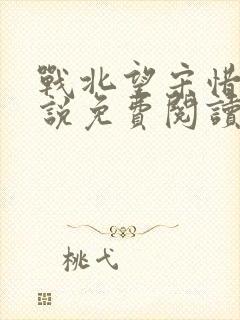 戰北望宋惜
說免費閱讀
桃弋